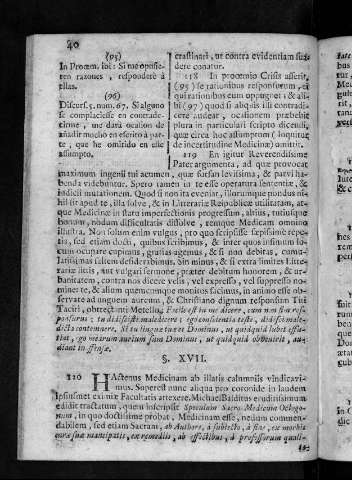 40
(95)
In Proœm. ibi: Si me opusie-
ren razones, responderè à
ellas.
(96)
Discurs. 5. num. 67. Si alguno
se complaciesse en contrade-
zirme, me darà ocasion de
añadir modio en escrito à par-
te, que he omitido en este
assumpto.
crassinari, ut contra evidentiam sua-
dere conatur.
118 In procemio Crisis asserit,
(95) se rationibus responsurum, ei
qui rationibus eum oppugnet: & ali-
bi (97) quod si aliquis illi contradi-
cere audeat, ocasionem præbebit
plura in particulari scripto dicendi,
quæ circa hoc assumptum (loquitur
de incertitudine Medicinæ) omittit.
119 En igitur Reverendissime
Pater argumenta, ad quæ provocat
maximum ingenii tui acumen, quæ satsan levissima, & parvi ha-
benda videbuntur. Spero tamen in te esse operatura lententiæ, &
indicii mutationem. Quod si non ita eveniat, illorumque pondus ni-
hil sit apud te, illa solve, & in Litterariæ Reipublicæ utilitatem, at-
que Medicinæ in statu imperfectionis progressum, altius, tutiusque
bonum, nodum difficultatis dissolve, remque Medicam omnino
illustra. Non solum enim vulgus, pro quo scripsisse sæpissime repe-
tis, sed etiam docti, quibus scribimus, & inter quos infimum lo-
cum occupare cupimus, gratias agemus, & si non debitas, cumu-
latissimas saltem desideratibimus. Sin minus, & si extra limites Litte-
rariæ litis, aut vulgari sermone, præter debitum honorem, & ur-
banitatem, contra nos dicere velis, vel expresso, vel suppresso no-
mine te, & alium quemcumque monitos facimus, in animo esse ob-
servate ad unguem aureum, & Christiano dignum responsum Tui
Taciti, obtrectanti Metello. Facile est in me dicere, cum non sim res-
ponsurus: tu didicisti maledicere; ego conscientia teste, didici male-
dicta contemnere. Si tu linguæ tuæ es Dominus, ut quidquid lubet effu-
tiat, ego mearum aurium sum Dominus, ut quidquid obvenerit, au-
diant inoffensæ.
§. XVII.
120 HActenus Medicinam ab illatis calumniis vindicavi-
mus. Superest nunc aliqua pro coronide in laudem
ipsiusmet eximiæ Facultatis attexere. Michael Balditus eruditissimum
edidit tractatum, quem inscripsit Speculum Sacro-Medicum Octogo-
num, in quo doctissime probat, Medicinam esse, nedum commen-
dabilem, sed etiam Sacram, ab Authore, à subjecto, à fine, ex morbis
curæ suæ mancipatis, ex remediis, ab effectibus, à professorum quali-